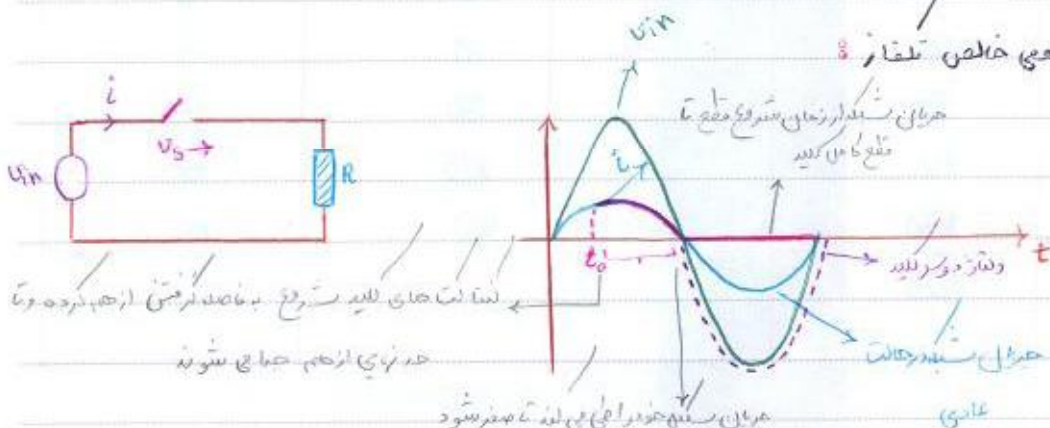 ومی خالص تکفاز :
Vin
i
Vs →
Vin
R
جریان شبکه از زمان شروع قطع تا
قطع کامل کلید
i
t
t₀
ولتاژ دو سر کلید
کنتاکت های کلید شروع به فاصله گرفتن از هم کرده و تا
حد نهایی از هم جدا می شوند
جریان شبکه در حالت
عادی
جریان سیکل خود را طی می کند تا صفر شود